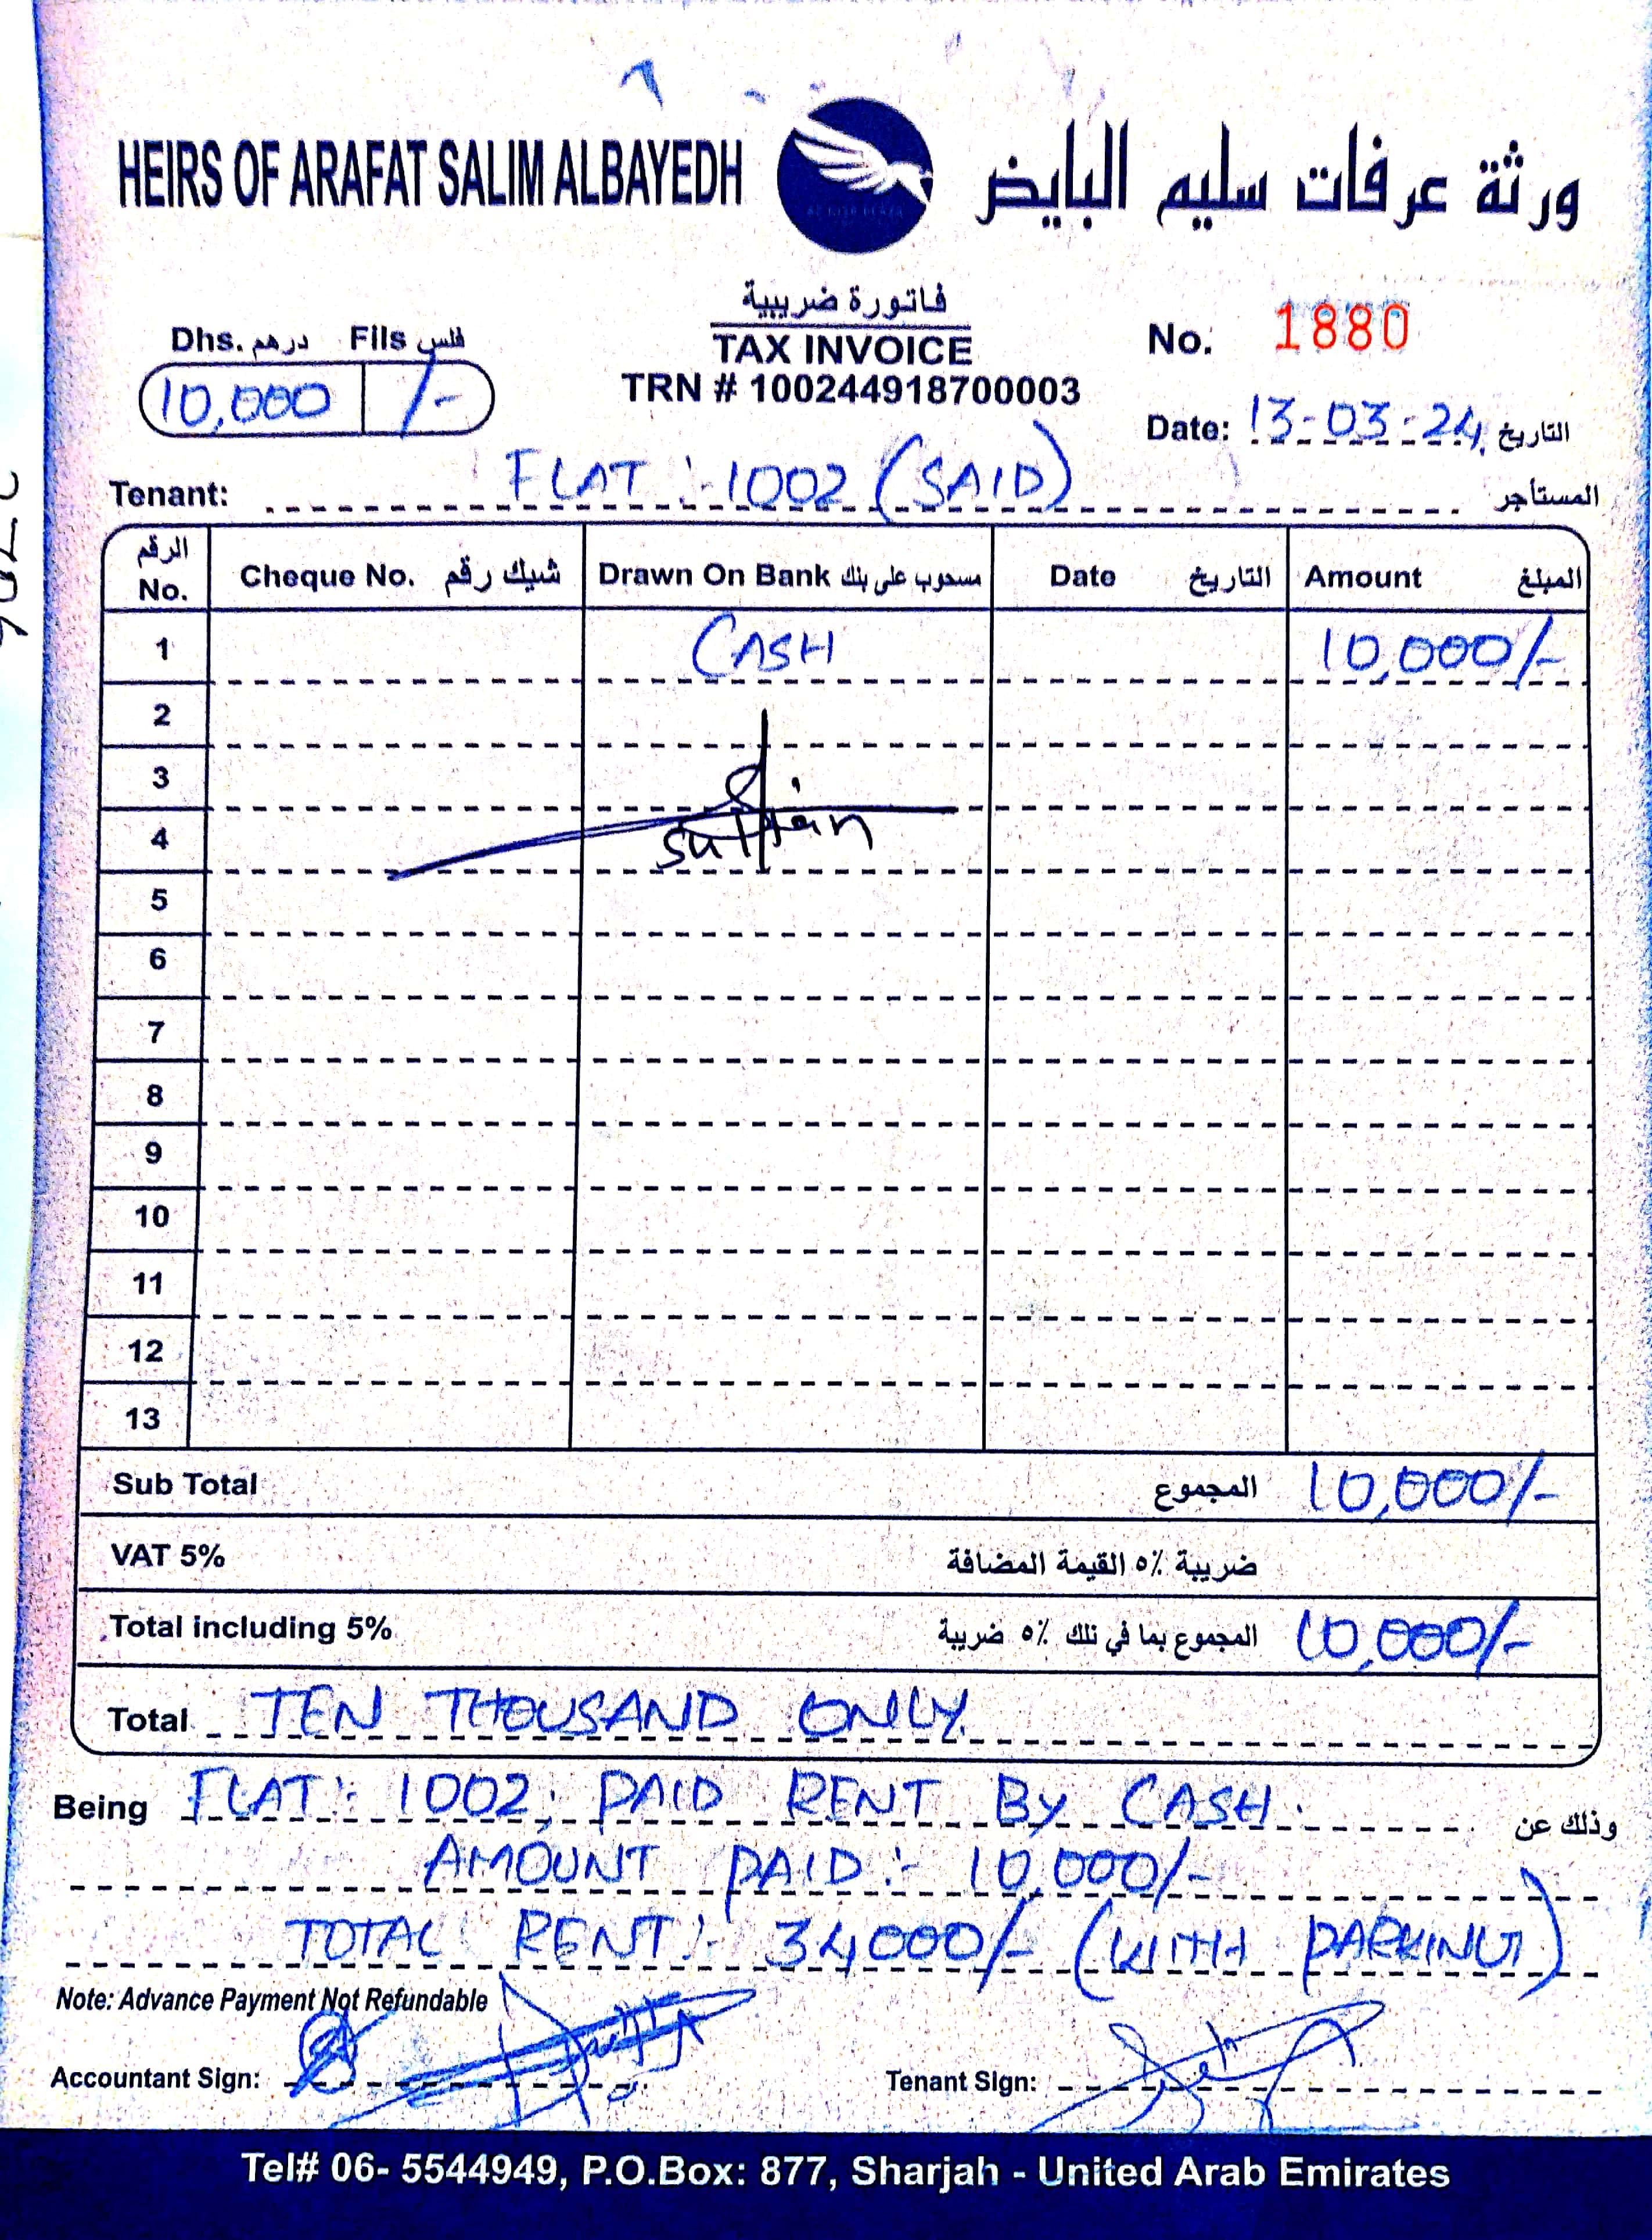 HEIRS OF ARAFAT SALIM ALBAYEDH ورثة عرفات سليم البايض
فاتورة ضريبية
TAX INVOICE
TRN # 100244918700003
Dhs. درهم Fils فلس
10,000 /-
No. 1880
Date: 13-03-24 التاريخ
Tenant: FLAT :- 1002 (SAID) المستأجر
الرقم No. Cheque No. شيك رقم Drawn On Bank مسحوب على بنك Date التاريخ Amount المبلغ
1 CASH 10,000/-
2
3
4
5
6
7
8
9
10
11
12
13
Sub Total المجموع 10,000/-
VAT 5% ضريبة ٥٪ القيمة المضافة
Total including 5% المجموع بما في تلك ٥٪ ضريبة 10,000/-
Total TEN THOUSAND ONLY.
Being FLAT :- 1002, PAID RENT BY CASH. وذلك عن
AMOUNT PAID :- 10,000/-
TOTAL RENT :- 34,000/- (WITH PARKING)
Note: Advance Payment Not Refundable
Accountant Sign: Tenant Sign:
Tel# 06- 5544949, P.O.Box: 877, Sharjah - United Arab Emirates